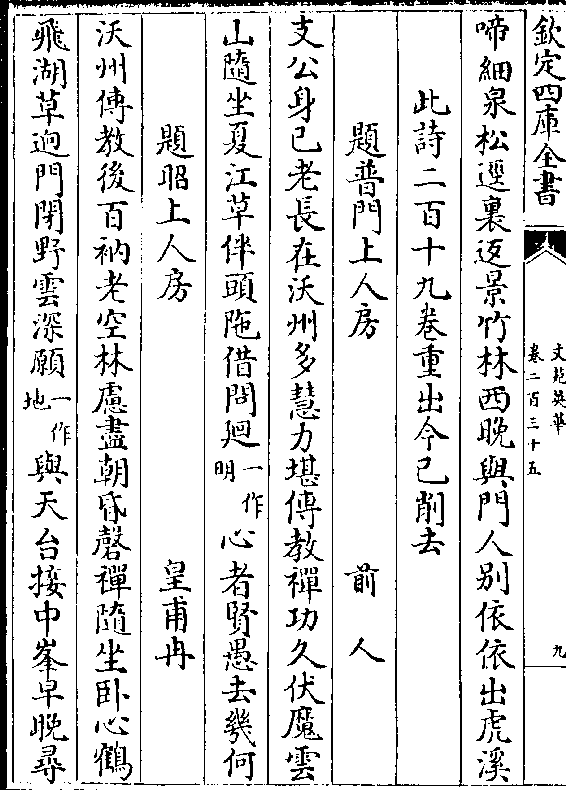 欽定四庫全書
文苑英華
卷二百三十五
九
啼細泉松逕裏返景竹林西晚與門人别依依出虎溪
此詩二百十九卷重出今已削去
題普門上人房 前人
支公身已老長在沃州多慧力堪傳教禪功久伏魔雲
山隨坐夏江草伴頭陁借問廻一作明心者賢愚去幾何
題昭上人房 皇甫冉
沃州傳教後百衲老空林慮盡朝昏磬禪隨坐卧心鶴
飛湖草逈門閉野雲深願一作地與天台接中峯早晚尋